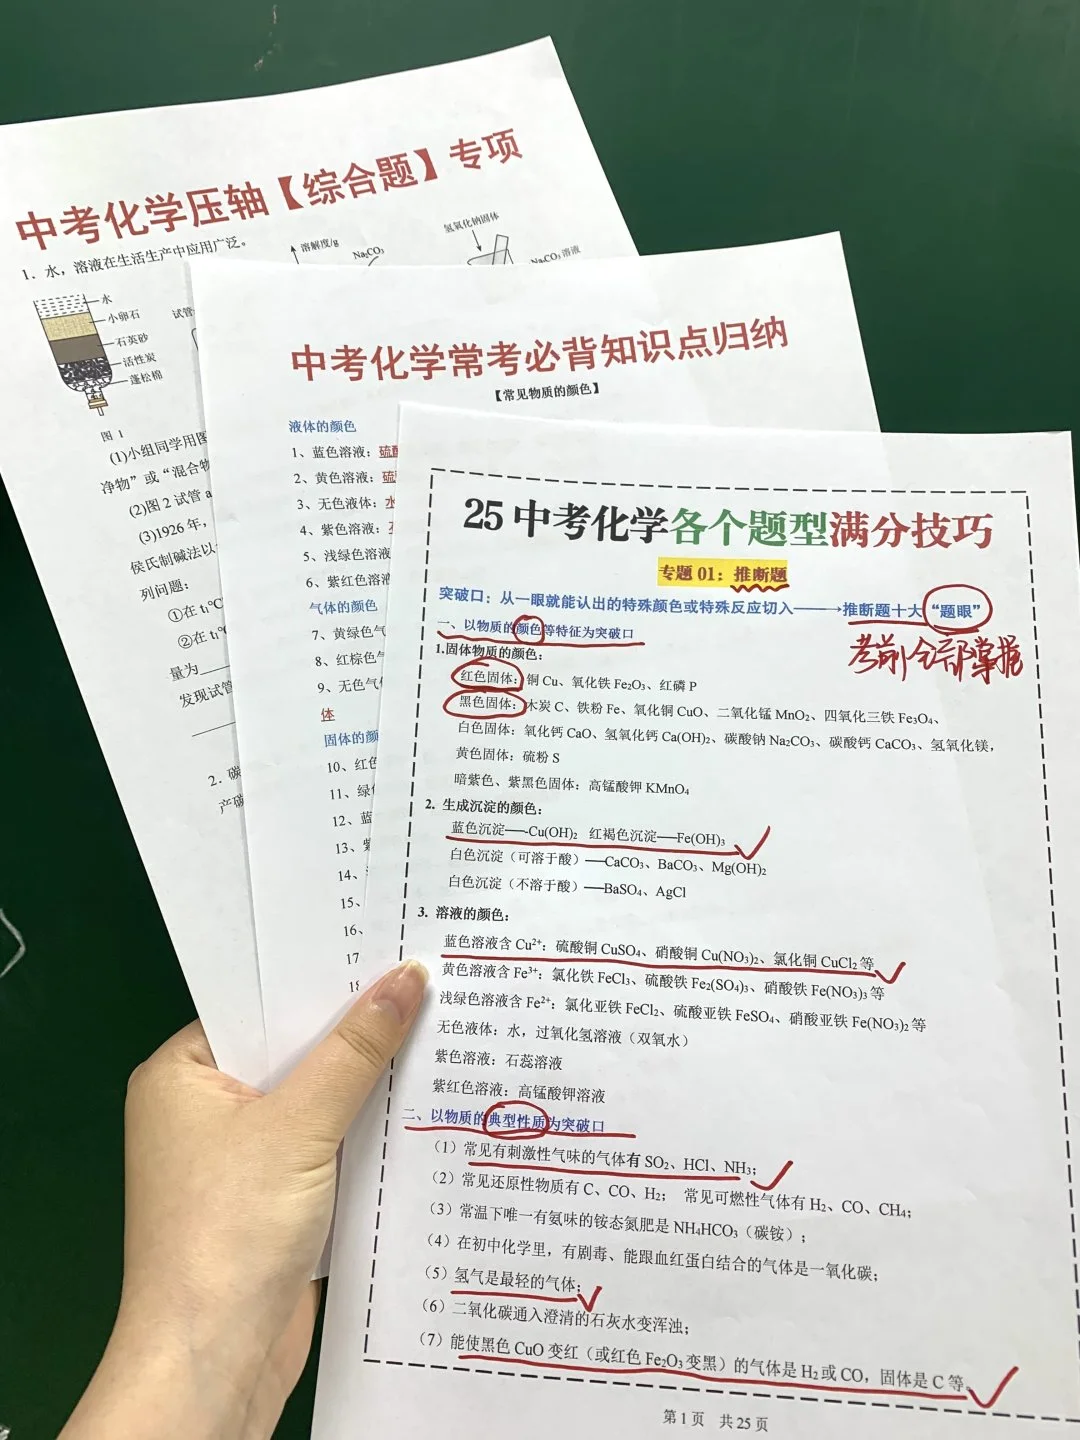 中考化学压轴【综合题】专项
1．水，溶液在生活生产中应用广泛。
水
小卵石
石英砂
活性炭
蓬松棉
图 1
试管
溶解度/g
Na₂CO₃
氢氧化钠固体
Na₂CO₃ 溶液
(1)小组同学用图
净物”或“混合物
(2)图 2 试管 a
(3)1926 年，
侯氏制碱法以
列问题：
①在 t₁℃
②在 t₁℃
量为
发现试管
2．碳
产碳
中考化学常考必背知识点归纳
【常见物质的颜色】
液体的颜色
1、蓝色溶液：硫酸
2、黄色溶液：硫
3、无色液体：水
4、紫色溶液：
5、浅绿色溶液
6、紫红色溶液
气体的颜色
7、黄绿色气
8、红棕色气
9、无色气体
体
固体的颜
10、红色
11、绿
12、蓝
13、紫
14、
15、
16、
17
18
25 中考化学各个题型满分技巧
专题 01：推断题
突破口：从一眼就能认出的特殊颜色或特殊反应切入——→推断题十大“题眼”
考前全部掌握
一、以物质的颜色等特征为突破口
1.固体物质的颜色：
红色固体：铜 Cu、氧化铁 Fe₂O₃、红磷 P
黑色固体：木炭 C、铁粉 Fe、氧化铜 CuO、二氧化锰 MnO₂、四氧化三铁 Fe₃O₄、
白色固体：氧化钙 CaO、氢氧化钙 Ca(OH)₂、碳酸钠 Na₂CO₃、碳酸钙 CaCO₃、氢氧化镁，
黄色固体：硫粉 S
暗紫色、紫黑色固体：高锰酸钾 KMnO₄
2. 生成沉淀的颜色：
蓝色沉淀——-Cu(OH)₂ 红褐色沉淀——Fe(OH)₃
白色沉淀（可溶于酸）——CaCO₃、BaCO₃、Mg(OH)₂
白色沉淀（不溶于酸）——BaSO₄、AgCl
3. 溶液的颜色：
蓝色溶液含 Cu²⁺：硫酸铜 CuSO₄、硝酸铜 Cu(NO₃)₂、氯化铜 CuCl₂ 等
黄色溶液含 Fe³⁺：氯化铁 FeCl₃、硫酸铁 Fe₂(SO₄)₃、硝酸铁 Fe(NO₃)₃ 等
浅绿色溶液含 Fe²⁺：氯化亚铁 FeCl₂、硫酸亚铁 FeSO₄、硝酸亚铁 Fe(NO₃)₂ 等
无色液体：水，过氧化氢溶液（双氧水）
紫色溶液：石蕊溶液
紫红色溶液：高锰酸钾溶液
二、以物质的典型性质为突破口
（1）常见有刺激性气味的气体有 SO₂、HCl、NH₃；
（2）常见还原性物质有 C、CO、H₂； 常见可燃性气体有 H₂、CO、CH₄；
（3）常温下唯一有氨味的铵态氮肥是 NH₄HCO₃（碳铵）；
（4）在初中化学里，有剧毒、能跟血红蛋白结合的气体是一氧化碳；
（5）氢气是最轻的气体；
（6）二氧化碳通入澄清的石灰水变浑浊；
（7）能使黑色 CuO 变红（或红色 Fe₂O₃ 变黑）的气体是 H₂ 或 CO，固体是 C 等。
第 1 页 共 25 页